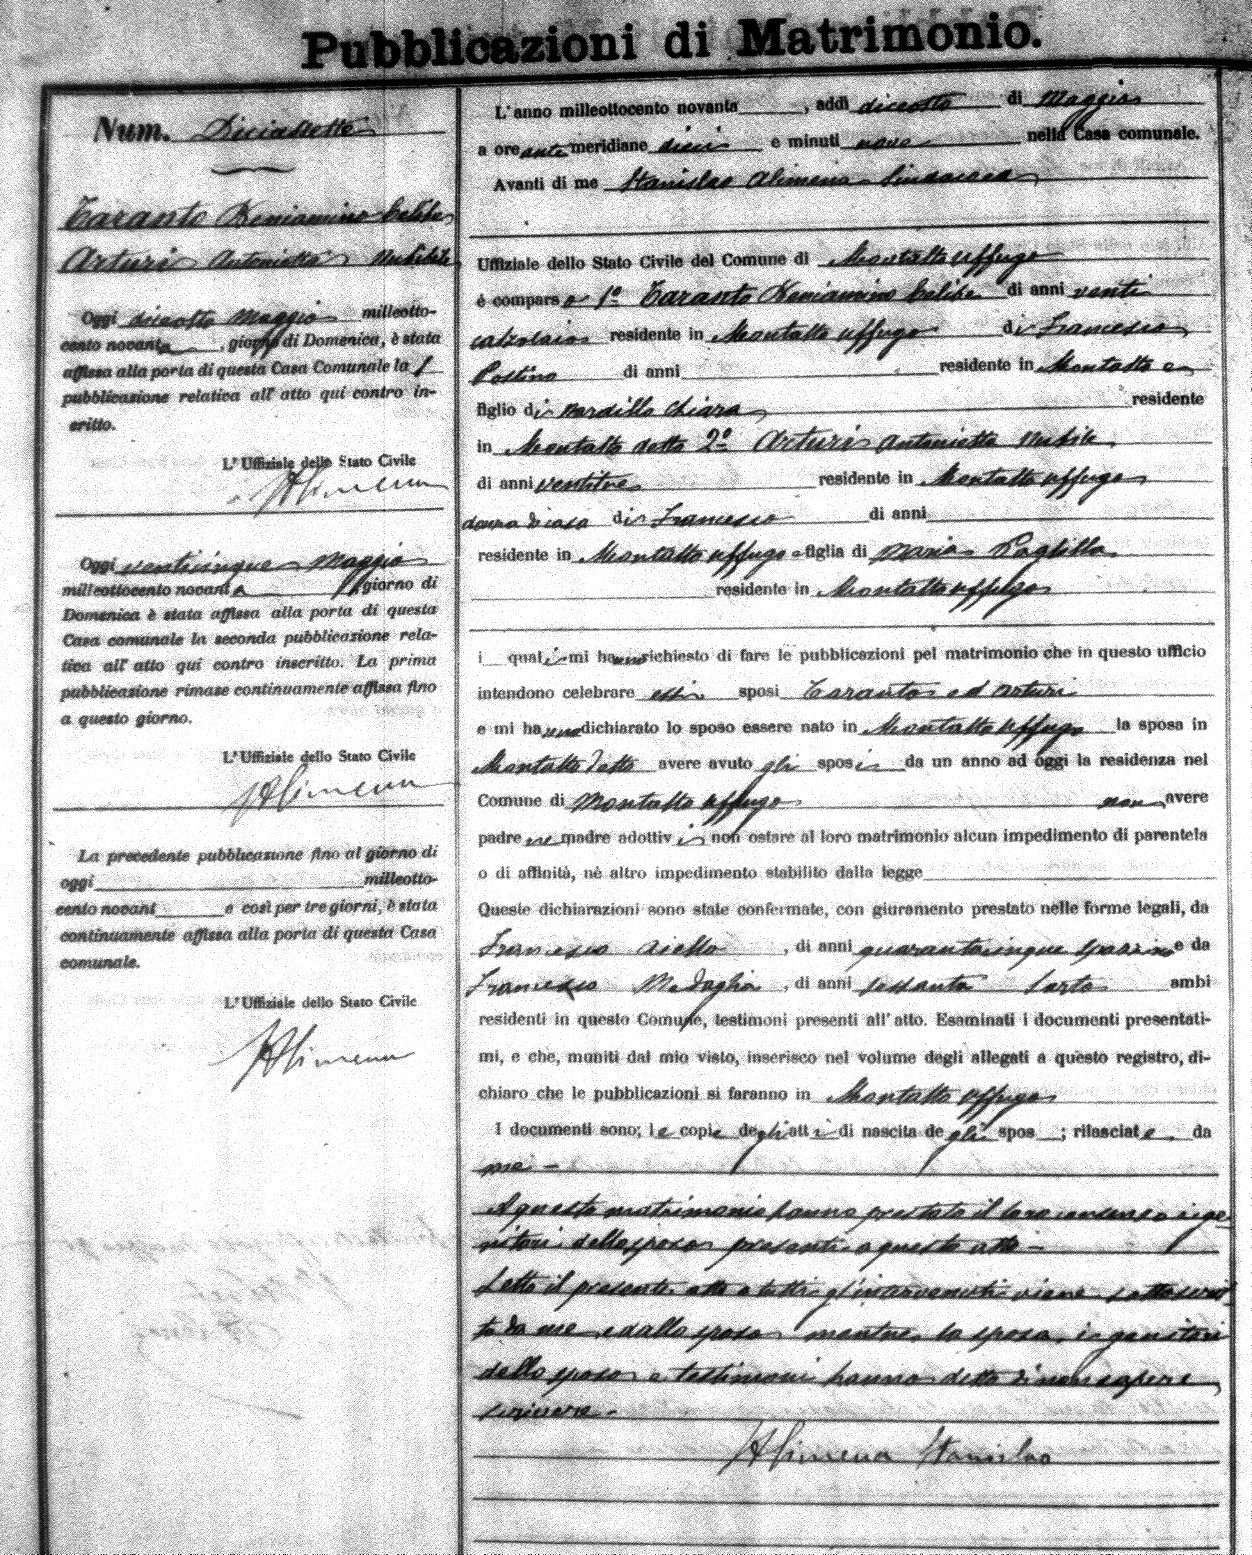 Pubblicazioni di Matrimonio.
Num. Diciassette
Taranto Beniamino Celibe
Arturi Antonietta Nubile
Oggi diciotto Maggio milleotto-
cento novanta, giorno di Domenica, è stata
affissa alla porta di questa Casa Comunale la 1
pubblicazione relativa all' atto qui contro in-
scritto.
L' Uffiziale dello Stato Civile
SAlimena
Oggi venticinque Maggio
milleottocento novanta giorno di
Domenica è stata affissa alla porta di questa
Casa comunale la seconda pubblicazione rela-
tiva all' atto qui contro inscritto. La prima
pubblicazione rimase continuamente affissa fino
a questo giorno.
L' Uffiziale dello Stato Civile
SAlimena
La precedente pubblicazione fino al giorno di
oggi milleotto-
cento novant e così per tre giorni, è stata
continuamente affissa alla porta di questa Casa
comunale.
L' Uffiziale dello Stato Civile
SAlimena
L' anno milleottocento novanta, addì diciotto di Maggio
a ore antemeridiane dieci e minuti nove nella Casa comunale.
Avanti di me Stanislao Alimena Sindaco
Uffiziale dello Stato Civile del Comune di Montalto Uffugo
è compars o 1º Taranto Beniamino Celibe di anni venti
calzolaio residente in Montalto Uffugo di Francesco
Postino di anni residente in Montalto e
figlio di Nardillo Chiara residente
in Montalto detto 2º Arturi Antonietta Nubile
di anni ventitre residente in Montalto Uffugo
donna di casa di Francesco di anni
residente in Montalto Uffugo e figlia di Maria Paglilla
residente in Montalto Uffugo
i quali mi hanno richiesto di fare le pubblicazioni pel matrimonio che in questo ufficio
intendono celebrare essi sposi Taranto ed Arturi
e mi hanno dichiarato lo sposo essere nato in Montalto Uffugo la sposa in
Montalto detto avere avuto gli sposi da un anno ad oggi la residenza nel
Comune di Montalto Uffugo non avere
padre ne madre adottivi non ostare al loro matrimonio alcun impedimento di parentela
o di affinità, nè altro impedimento stabilito dalla legge
Queste dichiarazioni sono state confermate, con giuramento prestato nelle forme legali, da
Francesco Aiello, di anni quarantacinque Spazzino e da
Francesco Medaglia, di anni sessanta Sarto ambi
residenti in questo Comune, testimoni presenti all' atto. Esaminati i documenti presentati-
mi, e che, muniti dal mio visto, inserisco nel volume degli allegati a questo registro, di-
chiaro che le pubblicazioni si faranno in Montalto Uffugo
I documenti sono; le copie degli atti di nascita degli spos ; rilasciate da
me -
A questo matrimonio hanno prestato il loro consenso i ge-
nitori dello sposo presenti a questo atto -
Letto il presente atto a tutti gl'intervenuti viene sottoscrit
to da me e dallo sposo mentre la sposa, i genitori
dello sposo e testimoni hanno detto di non sapere
scrivere -
Alimena Stanislao